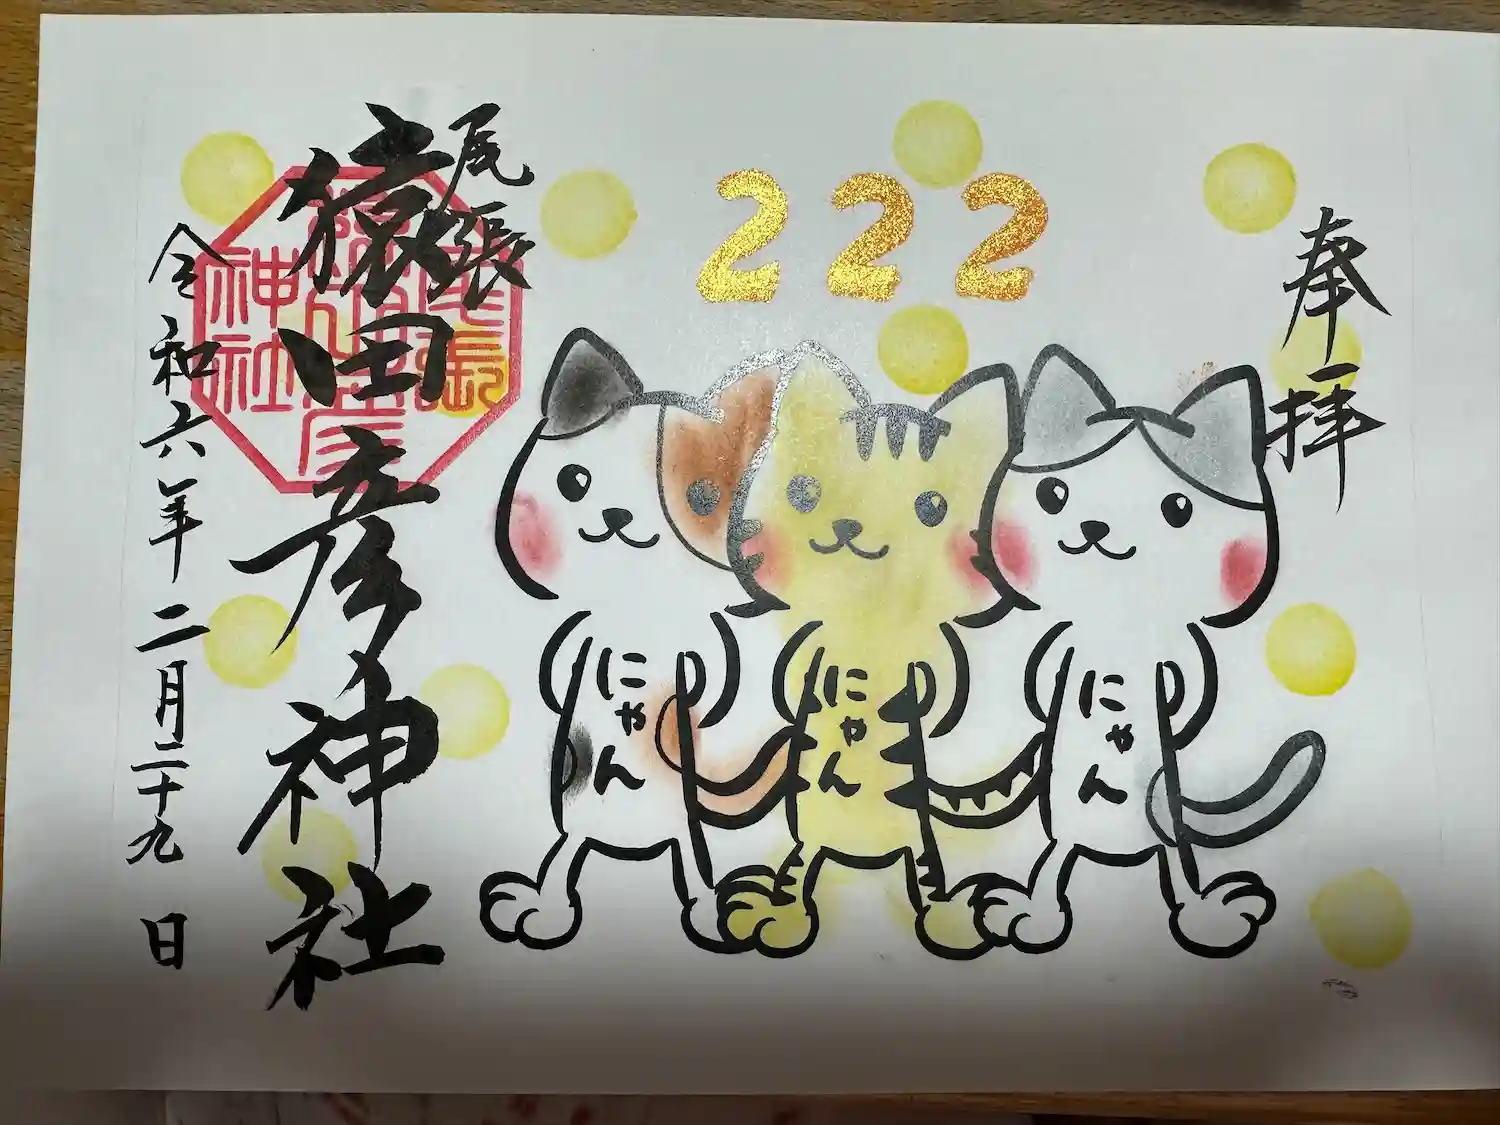 奉拝
222
にゃん
にゃん
にゃん
尾張
猿田彦神社
令和六年二月二十九日
尾張
猿田彦
神社